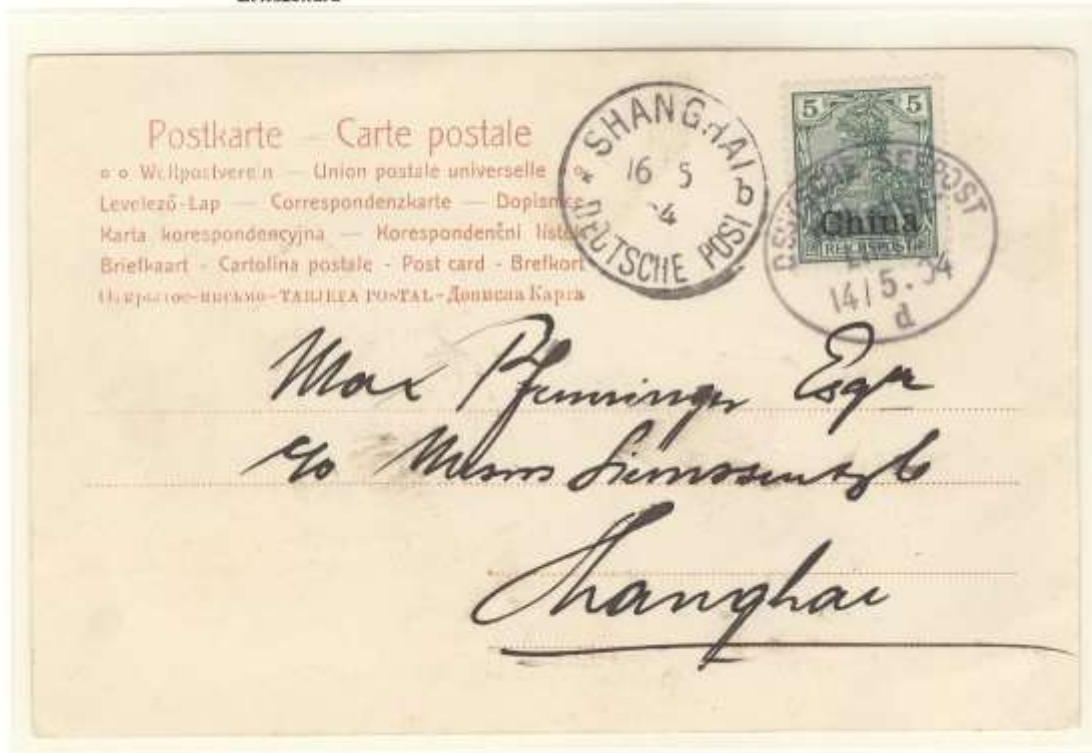 Postkarte — Carte postale
Weltpostverein — Union postale universelle
Levelező-Lap — Correspondenzkarte — Dopisnice
Karta korespondencyjna — Korespondenční lístek
Briefkaart - Cartolina postale - Post card - Brefkort
Открытое-письмо-TARJETA POSTAL-Дописна Карта
SHANGHAI
16 5
4
b
DEUTSCHE POST
5 5
China
REICHSPOST
DEUTSCHE SEEPOST
14/5.04
d
Max Pfenninger Esqr
c/o Messrs Siemssen & Co
Shanghai